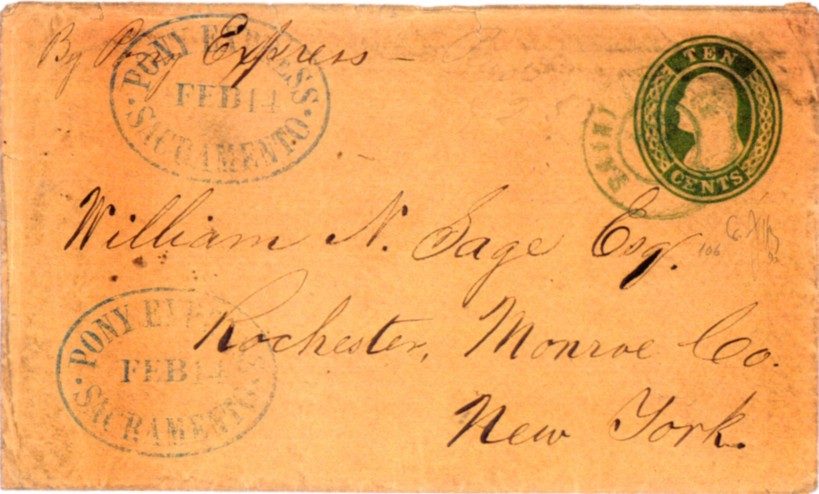 By Pony Express –
PONY EXPRESS
FEB 14
SACRAMENTO.
TEN
CENTS
William N. Sage Esq.
106
Rochester, Monroe Co.
New York.
PONY EXPRESS
FEB 14
SACRAMENTO.